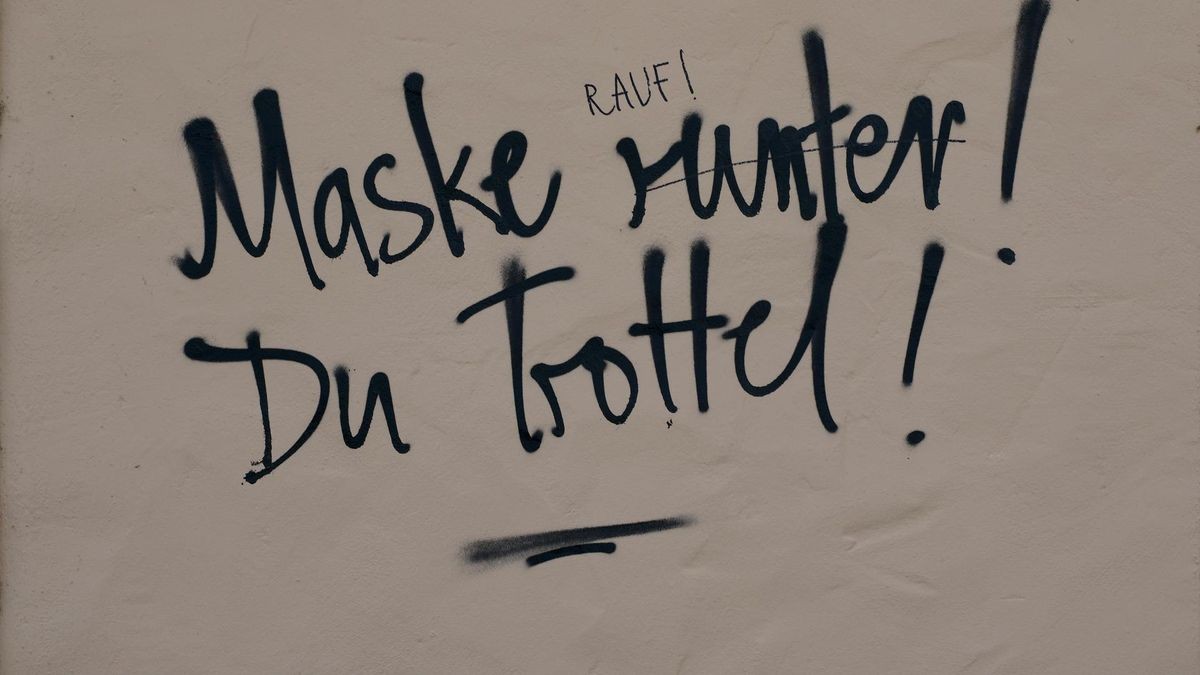 RAUF!
Maske runter!
Du Trottel!